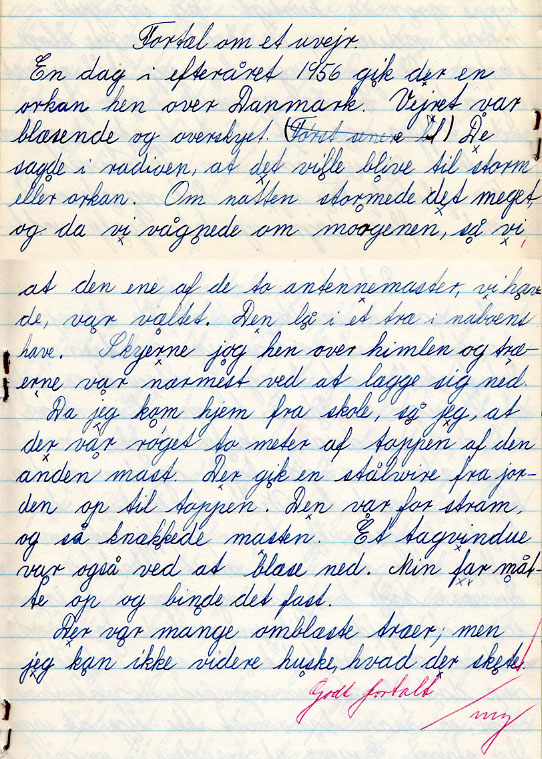 Fortæl om et uvejr.
En dag i efteråret 1956 gik der en
orkan hen over Danmark. Vejret var
blæsende og overskyet. (Først senere til) De
sagde i radioen, at det ville blive til storm
eller orkan. Om natten stormede det meget,
og da vi vågnede om morgenen, så vi,
at den ene af de to antennemaster, vi hav-
de, var væltet. Den lå i et træ i naboens
have. Skyerne jog hen over himlen og træ-
erne var nærmest ved at lægge sig ned.
Da jeg kom hjem fra skole, så jeg, at
der var røget to meter af toppen af den
anden mast. Der gik en stålwire fra jor-
den op til toppen. Den var for stram,
og så knækkede masten. Et tagvindue
var også ved at blæse ned. Min far måt-
te op og binde det fast.
Der var mange omblæste træer; men
jeg kan ikke videre huske, hvad der skete.
Godt fortalt